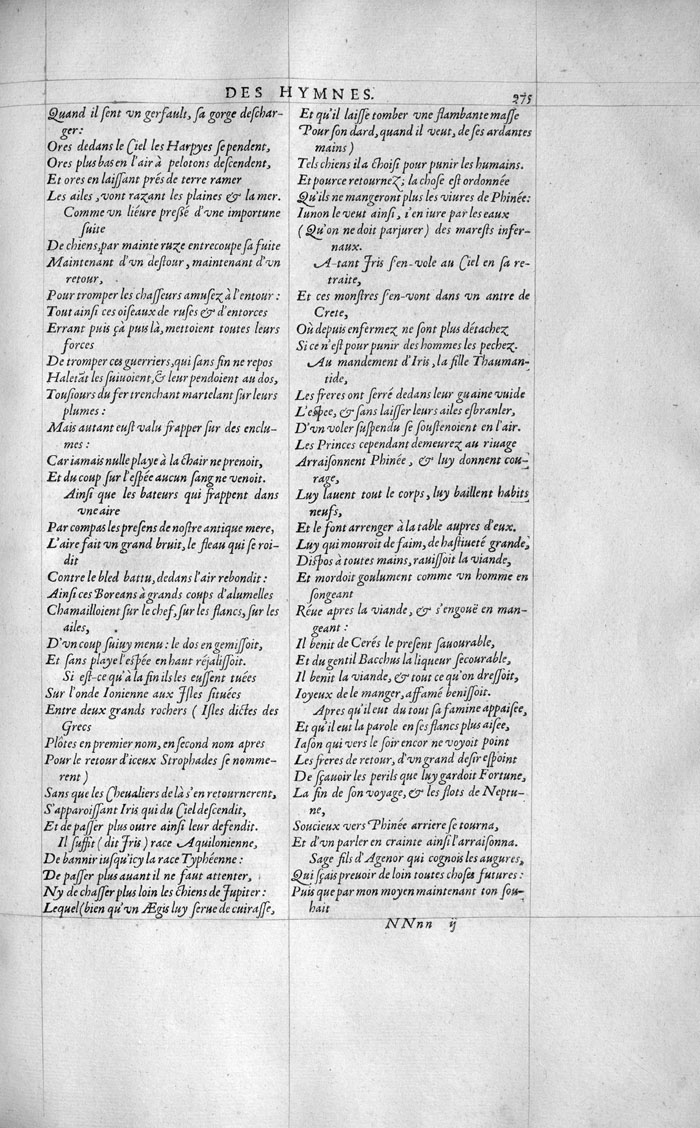 DES HYMNES.
275
Quand il sent vn gerfault, sa gorge deschar-
ger:
Ores dedans le Ciel les Harpyes se pendent,
Ores plus bas en l'air à pelotons descendent,
Et ores en laissant prés de terre ramer
Les ailes, vont razant les plaines & la mer.
Comme vn liéure pressé d'vne importune
suite
De chiens, par mainte ruze entrecoupe sa fuite
Maintenant d'vn destour, maintenant d'vn
retour,
Pour tromper les chasseurs amusez à l'entour:
Tout ainsi ces oiseaux de ruses & d'entorces
Errant puis çà puis là, mettoient toutes leurs
forces
De tromper ces guerriers, qui sans fin ne repos
Haletãt les suiuoient, & leur pendoient au dos,
Tousiours du fer trenchant martelant sur leurs
plumes:
Mais autant eust valu frapper sur des enclu-
mes:
Car iamais nulle playe à la chair ne prenoit,
Et du coup sur l'espée aucun sang ne venoit.
Ainsi que les bateurs qui frappent dans
vne aire
Par compas les presens de nostre antique mere,
L'aire fait vn grand bruit, le fleau qui se roi-
dit
Contre le bled battu, dedans l'air rebondit:
Ainsi ces Boreans à grands coups d'alumelles
Chamailloient sur le chef, sur les flancs, sur les
ailes,
D'vn coup suiuy menu: le dos en gemissoit,
Et sans playe l'espée en haut réjalissoit.
Si est-ce qu'à la fin ils les eussent tuées
Sur l'onde Ionienne aux Isles situées
Entre deux grands rochers (Isles dictes des
Grecs
Plôtes en premier nom, en second nom apres
Pour le retour d'iceux Strophades se nomme-
rent)
Sans que les Cheualiers de là s'en retournerent,
S'apparoissant Iris qui du Ciel descendit,
Et de passer plus outre ainsi leur defendit.
Il suffit (dit Iris) race Aquilonienne,
De bannir iusqu'icy la race Typhéenne:
De passer plus auant il ne faut attenter,
Ny de chasser plus loin les chiens de Jupiter:
Lequel (bien qu'vn Ægis luy serue de cuirasse,
Et qu'il laisse tomber vne flambante masse
Pour son dard, quand il veut, de ses ardantes
mains)
Tels chiens il a choisi pour punir les humains.
Et pource retournez; la chose est ordonnée
Qu'ils ne mangeront plus les viures de Phinée:
Iunon le veut ainsi, i'en iure par les eaux
(Qu'on ne doit parjurer) des marests infer-
naux.
A-tant Iris s'en-vole au Ciel en sa re-
traite,
Et ces monstres s'en-vont dans vn antre de
Crete,
Où depuis enfermez ne sont plus détachez
Si ce n'est pour punir des hommes les pechez.
Au mandement d'Iris, la fille Thauman-
tide,
Les freres ont serré dedans leur guaine vuide
L'espee, & sans laisser leurs ailes esbranler,
D'vn voler suspendu se soustenoient en l'air.
Les Princes cependant demeurez au riuage
Arraisonnent Phinée, & luy donnent cou-
rage,
Luy lauent tout le corps, luy baillent habits
neufs,
Et le font arrenger à la table aupres d'eux.
Luy qui mouroit de faim, de hastiueté grande,
Dispos à toutes mains, rauissoit la viande,
Et mordoit goulument comme vn homme en
songeant
Réue apres la viande, & s'engouë en man-
geant:
Il benit de Cerés le present sauourable,
Et du gentil Bacchus la liqueur secourable,
Il benit la viande, & tout ce qu'on dressoit,
Ioyeux de le manger, affamé benissoit.
Apres qu'il eut du tout sa famine appaisée,
Et qu'il eut la parole en ses flancs plus aisée,
Iason qui vers le soir encor ne voyoit point
Les freres de retour, d'vn grand desir espoint
De sçauoir les perils que luy gardoit Fortune,
La fin de son voyage, & les flots de Neptu-
ne,
Soucieux vers Phinée arriere se tourna,
Et d'vn parler en crainte ainsi l'arraisonna.
Sage fils d'Agenor qui cognois les augures,
Qui sçais preuoir de loin toutes choses futures:
Puis que par mon moyen maintenant ton sou-
hait
NNnn ij